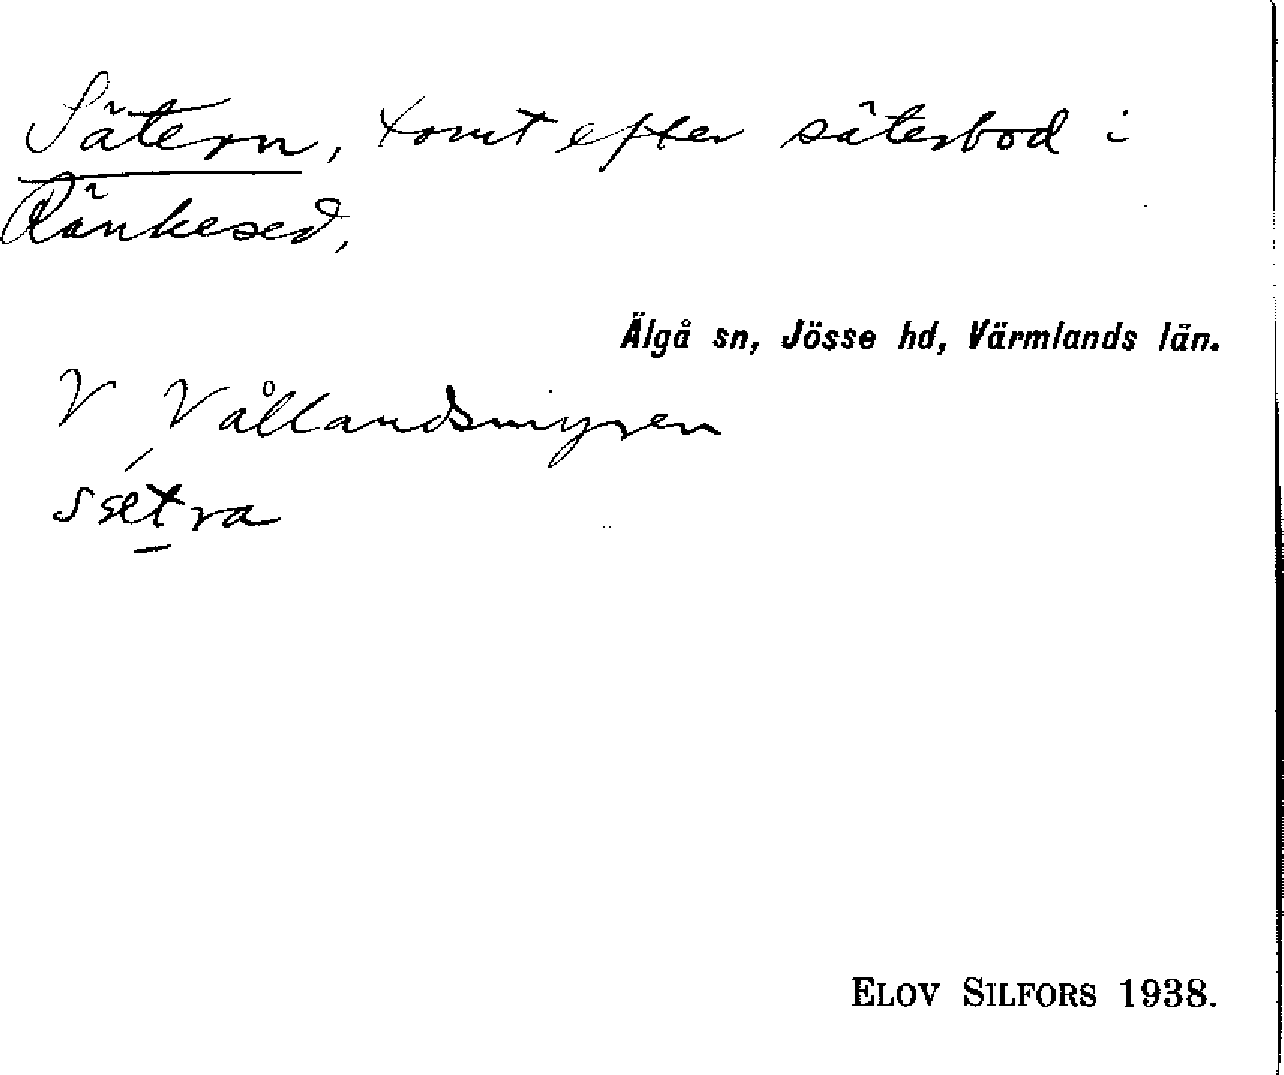 Sätern, tomt efter säterbod i
Ränkesed,
Älgå sn, Jösse hd, Värmlands län.
V Vållandsmyren
sætra
ELOV SILFORS 1938.